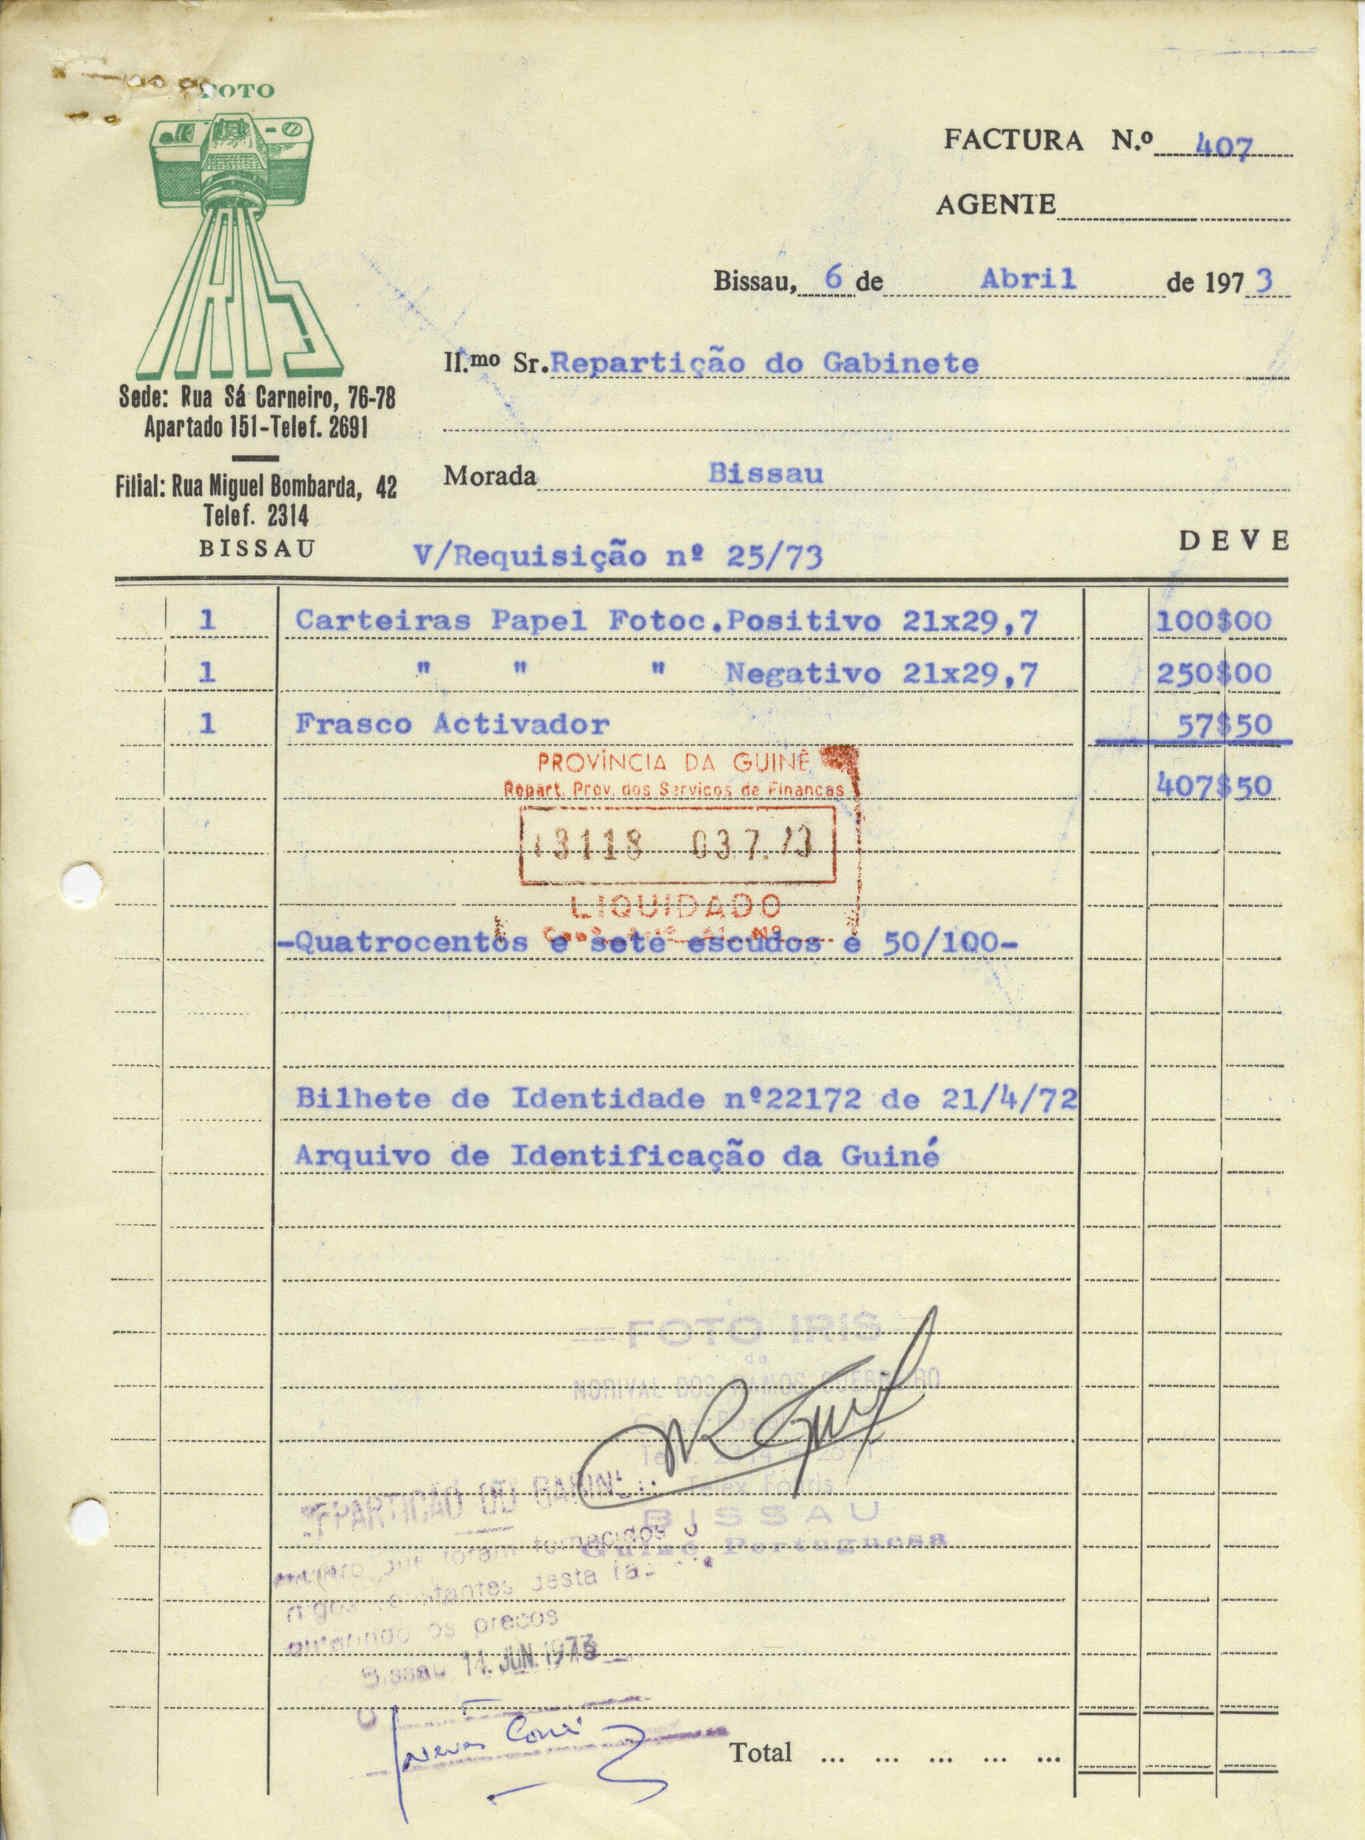 FOTO
IRIS
Sede: Rua Sá Carneiro, 76-78
Apartado 151-Telef. 2691
Filial: Rua Miguel Bombarda, 42
Telef. 2314
BISSAU
FACTURA N.º 407
AGENTE
Bissau, 6 de Abril de 1973
Il.mo Sr. Repartição do Gabinete
Morada Bissau
V/Requisição nº 25/73
DEVE
1 Carteiras Papel Fotoc.Positivo 21x29,7 100$00
1 " " " Negativo 21x29,7 250$00
1 Frasco Activador 57$50
407$50
PROVÍNCIA DA GUINÉ
Repart. Prov. dos Serviços de Finanças
13118 03.7.73
LIQUIDADO
-Quatrocentos e sete escudos e 50/100-
Bilhete de Identidade nº22172 de 21/4/72
Arquivo de Identificação da Guiné
FOTO IRIS
de
NORIVAL DOS RAMOS GUERREIRO
Telex Fotiris
BISSAU
Guiné Portuguesa
REPARTIÇÃO DO GABINETE
que foram fornecidos
constantes desta
os preços
Bissau 14. JUN. 1973
O
Total ... ... ... ... ...